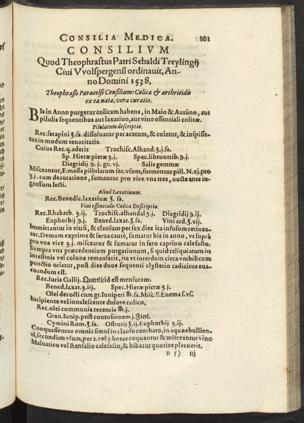 CONSILIA MEDICA. 101
CONSILIVM
Quod Theophrastus Patri Sebaldi Treylingij
Ciui Vvolspergensi ordinauit, An-
no Domini 1538.
Theophrasti Paracelsi Consilium: Colica & arthritidis
ex ea nata, vera curatio.
BIs in Anno purgetur colicam habens, in Maio & Autũno, aut
pilulis sequentibus aut laxatiuo, aut vino essentiali colico.
Pilularum descriptio.
Rec. serapini ʒ.ss. dissoluatur per acetum, & coletur, & inspisse-
tur in modum tenacitatis.
Cuius Rec. q. aderit Trochisc. Alhand. ʒ.ss.
Sp. Hieræ picræ ʒ.j. Spec. lithontrib. ʒ.j.
Diagridij ʒ.j. gr. vj. Salis gemmæ
Misceantur, F. massa pillularum sec. vsum, formentur pill. N. xj. pro
ʒ.j. cum deauratione, sumantur pro vice vna tres, nocte ante in-
gressum lecti.
Aliud Laxatiuum.
Rec. Benedic. laxatiuæ ʒ.ss.
Vini essentialis Colica Descriptio.
Rec. Rhabarb. ʒ.ij. Trochisc. alhandal ʒ.j. Diagridij ʒ.ij.
Euphorbij ʒ.j. Bened. laxat. ʒ.ss. Vini ard. ʒ.vij.
Immittantur in vitrũ, & clausum per sex dies ita infusum retinea-
tur. Demum exprime & serua cautè, sumatur bis in anno, vt suprà
pro vna vice ʒ.j. misceatur & sumatur in sero caprino calefacto.
Semper una inter has trium purgationum, si quid reliquiarum in
intestinis vel colone remanserit, ita vt interdum circa vmbilicum
punctio oriatur, post dies duos sequenti clysterio radicitus eua-
cuandum est.
Rec. Iuris Gallij. Quersilaet mensuram.
Bened. laxat. ʒ.iij. Spec. Hieræ picræ ʒ.j.
Olei decocti cum gr. Iuniperi ℔.ss. Misc. F. Enema s. vs.
Incipiente vel inualescente dolore colico,
Rec. olei communis recentis ℔.j.
Gran. Iunip. post contusionem ʒ.
Cymini Rom. ʒ.ss. Ostrutij ʒ.ij. Euphorbij ʒ.ij.
Conquassentur omnia simul in clauso cantharo, in aqua ebullien-
ti, secundum vsum, per 2. vel 3 horas coquantur & misceantur vino
Maluatico vel Rensalio calefacto, & bibatur quoties placuerit.
B 5) iij